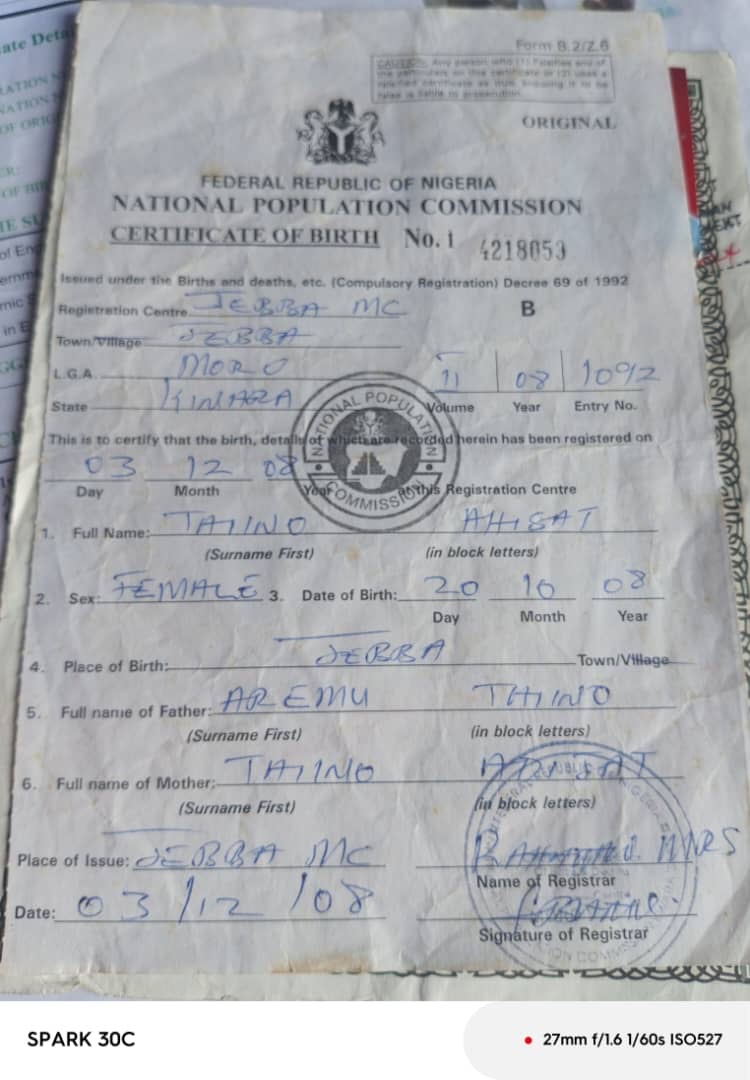 Form B.2/Z.6
CAUTION: Any person who (1) Falsifies any of
the particulars on this certificate or (2) uses a
falsified certificate as true, knowing it to be
false is liable to prosecution.
ORIGINAL
FEDERAL REPUBLIC OF NIGERIA
NATIONAL POPULATION COMMISSION
CERTIFICATE OF BIRTH No. 1 4218053
Issued under the Births and deaths, etc. (Compulsory Registration) Decree 69 of 1992
Registration Centre JEBBA MC B
Town/Village JEBBA
L.G.A. MORO
11 08 1092
State KWARA Volume Year Entry No.
This is to certify that the birth, details of which are recorded herein has been registered on
03 12 08
Day Month Year at this Registration Centre
1. Full Name: TAIINO AHISAT
(Surname First) (in block letters)
2. Sex: FEMALE 3. Date of Birth: 20 10 08
Day Month Year
4. Place of Birth: JEBBA Town/Village
5. Full name of Father: AREMU TAIINO
(Surname First) (in block letters)
6. Full name of Mother: TAIINO
(Surname First) (in block letters)
Place of Issue: JEBBA MC MRS
Name of Registrar
Date: 03/12/08
Signature of Registrar
NATIONAL POPULATION COMMISSION
SPARK 30C
27mm f/1.6 1/60s ISO527